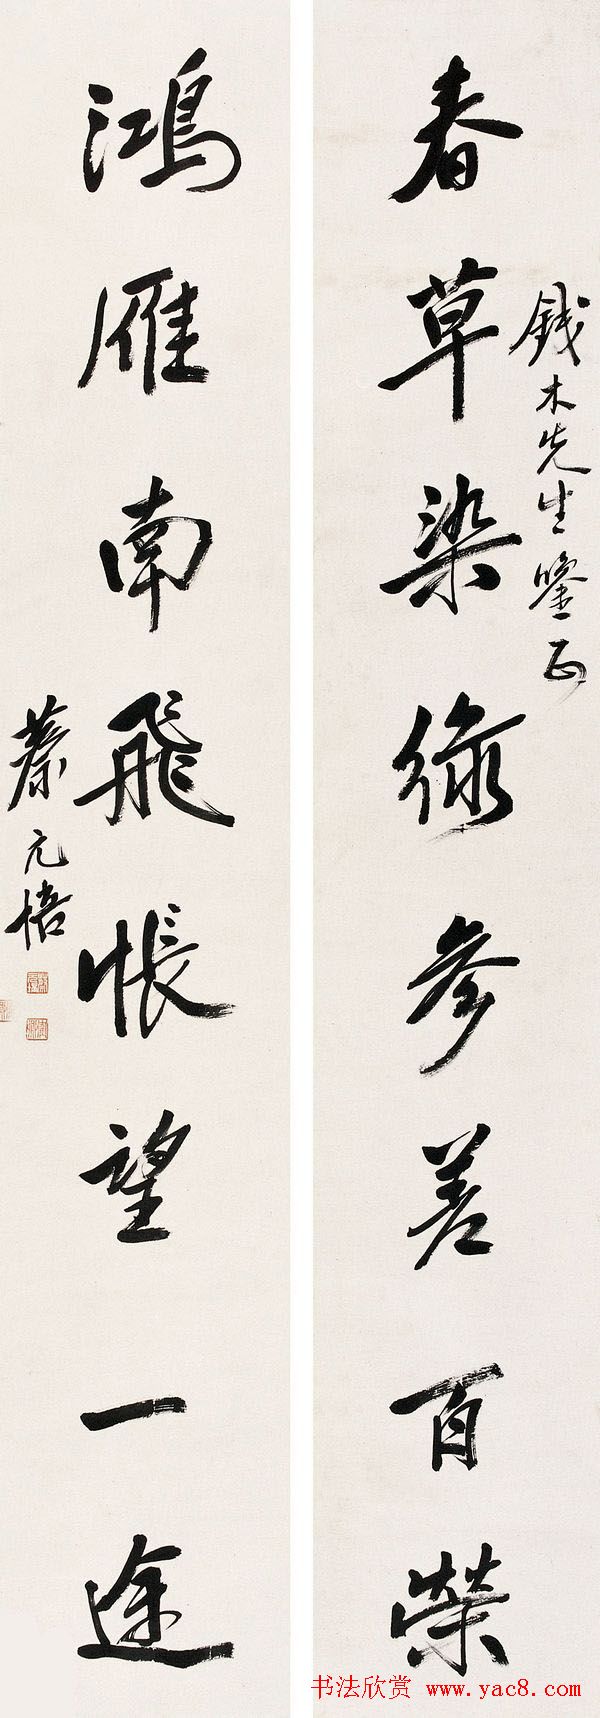 春草染綠參差百榮
錢木先生鑒正
鴻雁南飛悵望一途
蔡元培
书法欣赏 www.yac8.com